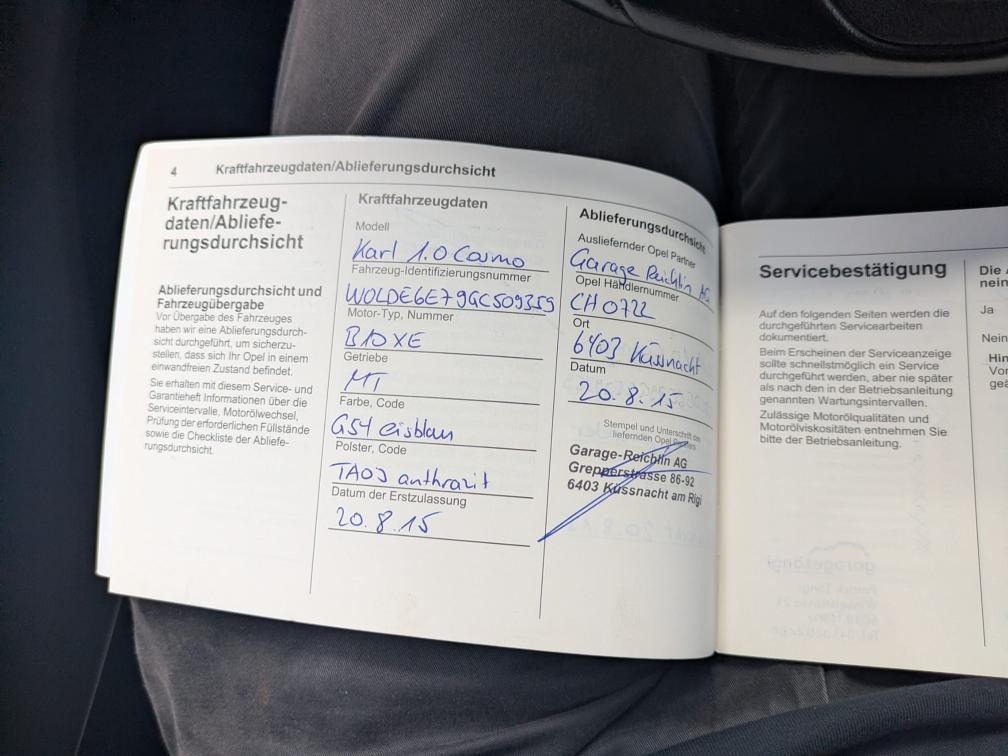 4 Kraftfahrzeugdaten/Ablieferungsdurchsicht
Kraftfahrzeug-
daten/Abliefe-
rungsdurchsicht
Ablieferungsdurchsicht und
Fahrzeugübergabe
Vor Übergabe des Fahrzeuges
haben wir eine Ablieferungsdurch-
sicht durchgeführt, um sicherzu-
stellen, dass sich Ihr Opel in einem
einwandfreien Zustand befindet.
Sie erhalten mit diesem Service- und
Garantieheft Informationen über die
Serviceintervalle, Motorölwechsel,
Prüfung der erforderlichen Füllstände
sowie die Checkliste der Abliefe-
rungsdurchsicht.
Kraftfahrzeugdaten
Modell
Karl 1.0 Cosmo
Fahrzeug-Identifizierungsnummer
W0LDE6E79GC509359
Motor-Typ, Nummer
B10XE
Getriebe
MT
Farbe, Code
G54 eisblau
Polster, Code
TA0J anthrazit
Datum der Erstzulassung
20.8.15
Ablieferungsdurchsicht
Ausliefernder Opel Partner
Garage Reichlin AG
Opel Händlernummer
CH0722
Ort
6403 Küssnacht
Datum
20.8.15
Stempel und Unterschrift des
liefernden Opel Partners
Garage-Reichlin AG
Grepperstrasse 86-92
6403 Küssnacht am Rigi
Servicebestätigung
Auf den folgenden Seiten werden die
durchgeführten Servicearbeiten
dokumentiert.
Beim Erscheinen der Serviceanzeige
sollte schnellstmöglich ein Service
durchgeführt werden, aber nie später
als nach den in der Betriebsanleitung
genannten Wartungsintervallen.
Zulässige Motorölqualitäten und
Motorölviskositäten entnehmen Sie
bitte der Betriebsanleitung.
Die
nein
Ja
Nein
Hin
Vor